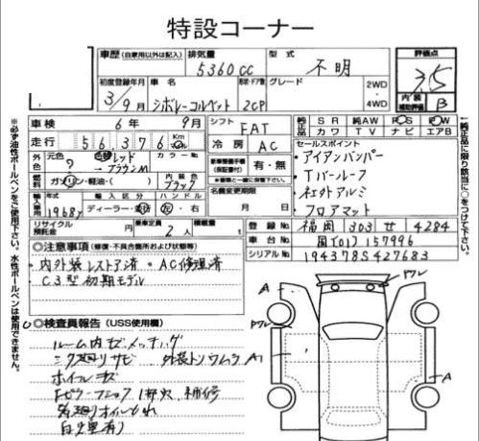 特設コーナー
車歴 (自家用以外は記入)
排気量 5360cc
型式 不明
評価点 3.5
初度登録年月 3/9月
車名 シボレーコルベット
ドア 形状 2CP
グレード
2WD
4WD
内装 補助評価 B
車検 6年 9月
シフト FAT
純正 SR 純AW PS PW
カワ TV ナビ エアB
走行 56,376 Km
冷房 AC
セールスポイント
・アイアンバンパー
・Tバールーフ
・社外アルミ
・フロアマット
外色 元色 ? 色替 レッド→ブラウンM カラーNo.
有・無
燃料 ガソリン・軽油・( )
内装色 ブラック
名義変更期限 月 日
年式 1968年
輸入区分 ディーラー・並行
ハンドル 左・右
リサイクル預託金 円
乗車定員 2人
積載量
登録No. 福岡 303 せ 4284
車台No. 国[01]157996
シリアルNo. 194378S427683
○注意事項 (修復・不具合箇所および状態等)
・内外装レストア済 ・AC修理済
・C3型初期モデル
○検査員報告 (USS使用欄)
ルーム内キズ
サビ 外装トソウムラ
ホイールキズ
補修
下廻りオイルもれ
A
ワレ
ワレ
A
ワレ
A1
A
A
※必ず油性ボールペンをご使用下さい。水性ボールペンは使用できません。